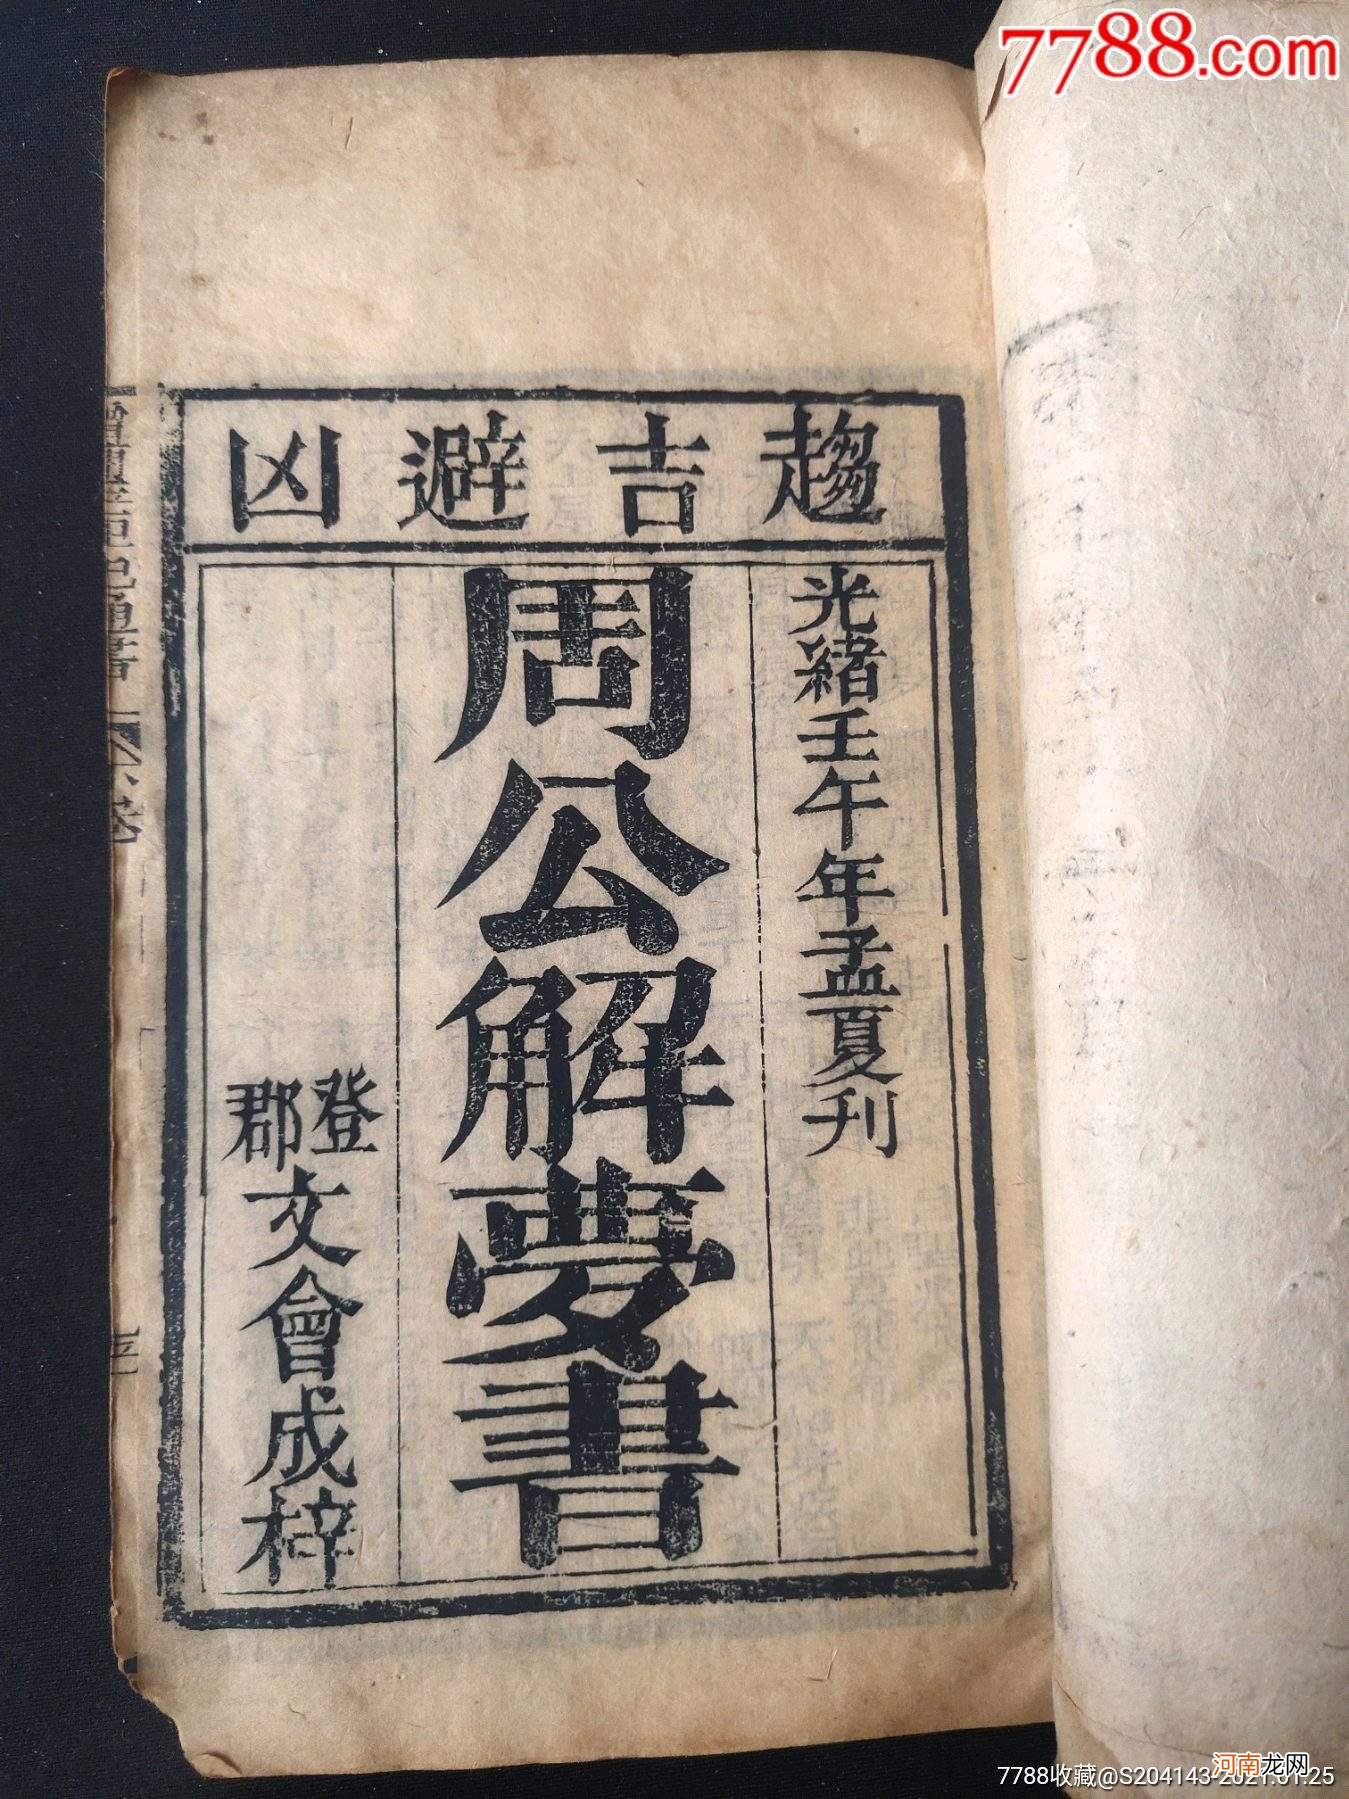 7788.com
趨吉避凶
光緒壬午年孟夏刊
周公解夢書
登郡文會成梓
河南龙网
7788收藏@S204143-2021.01.25